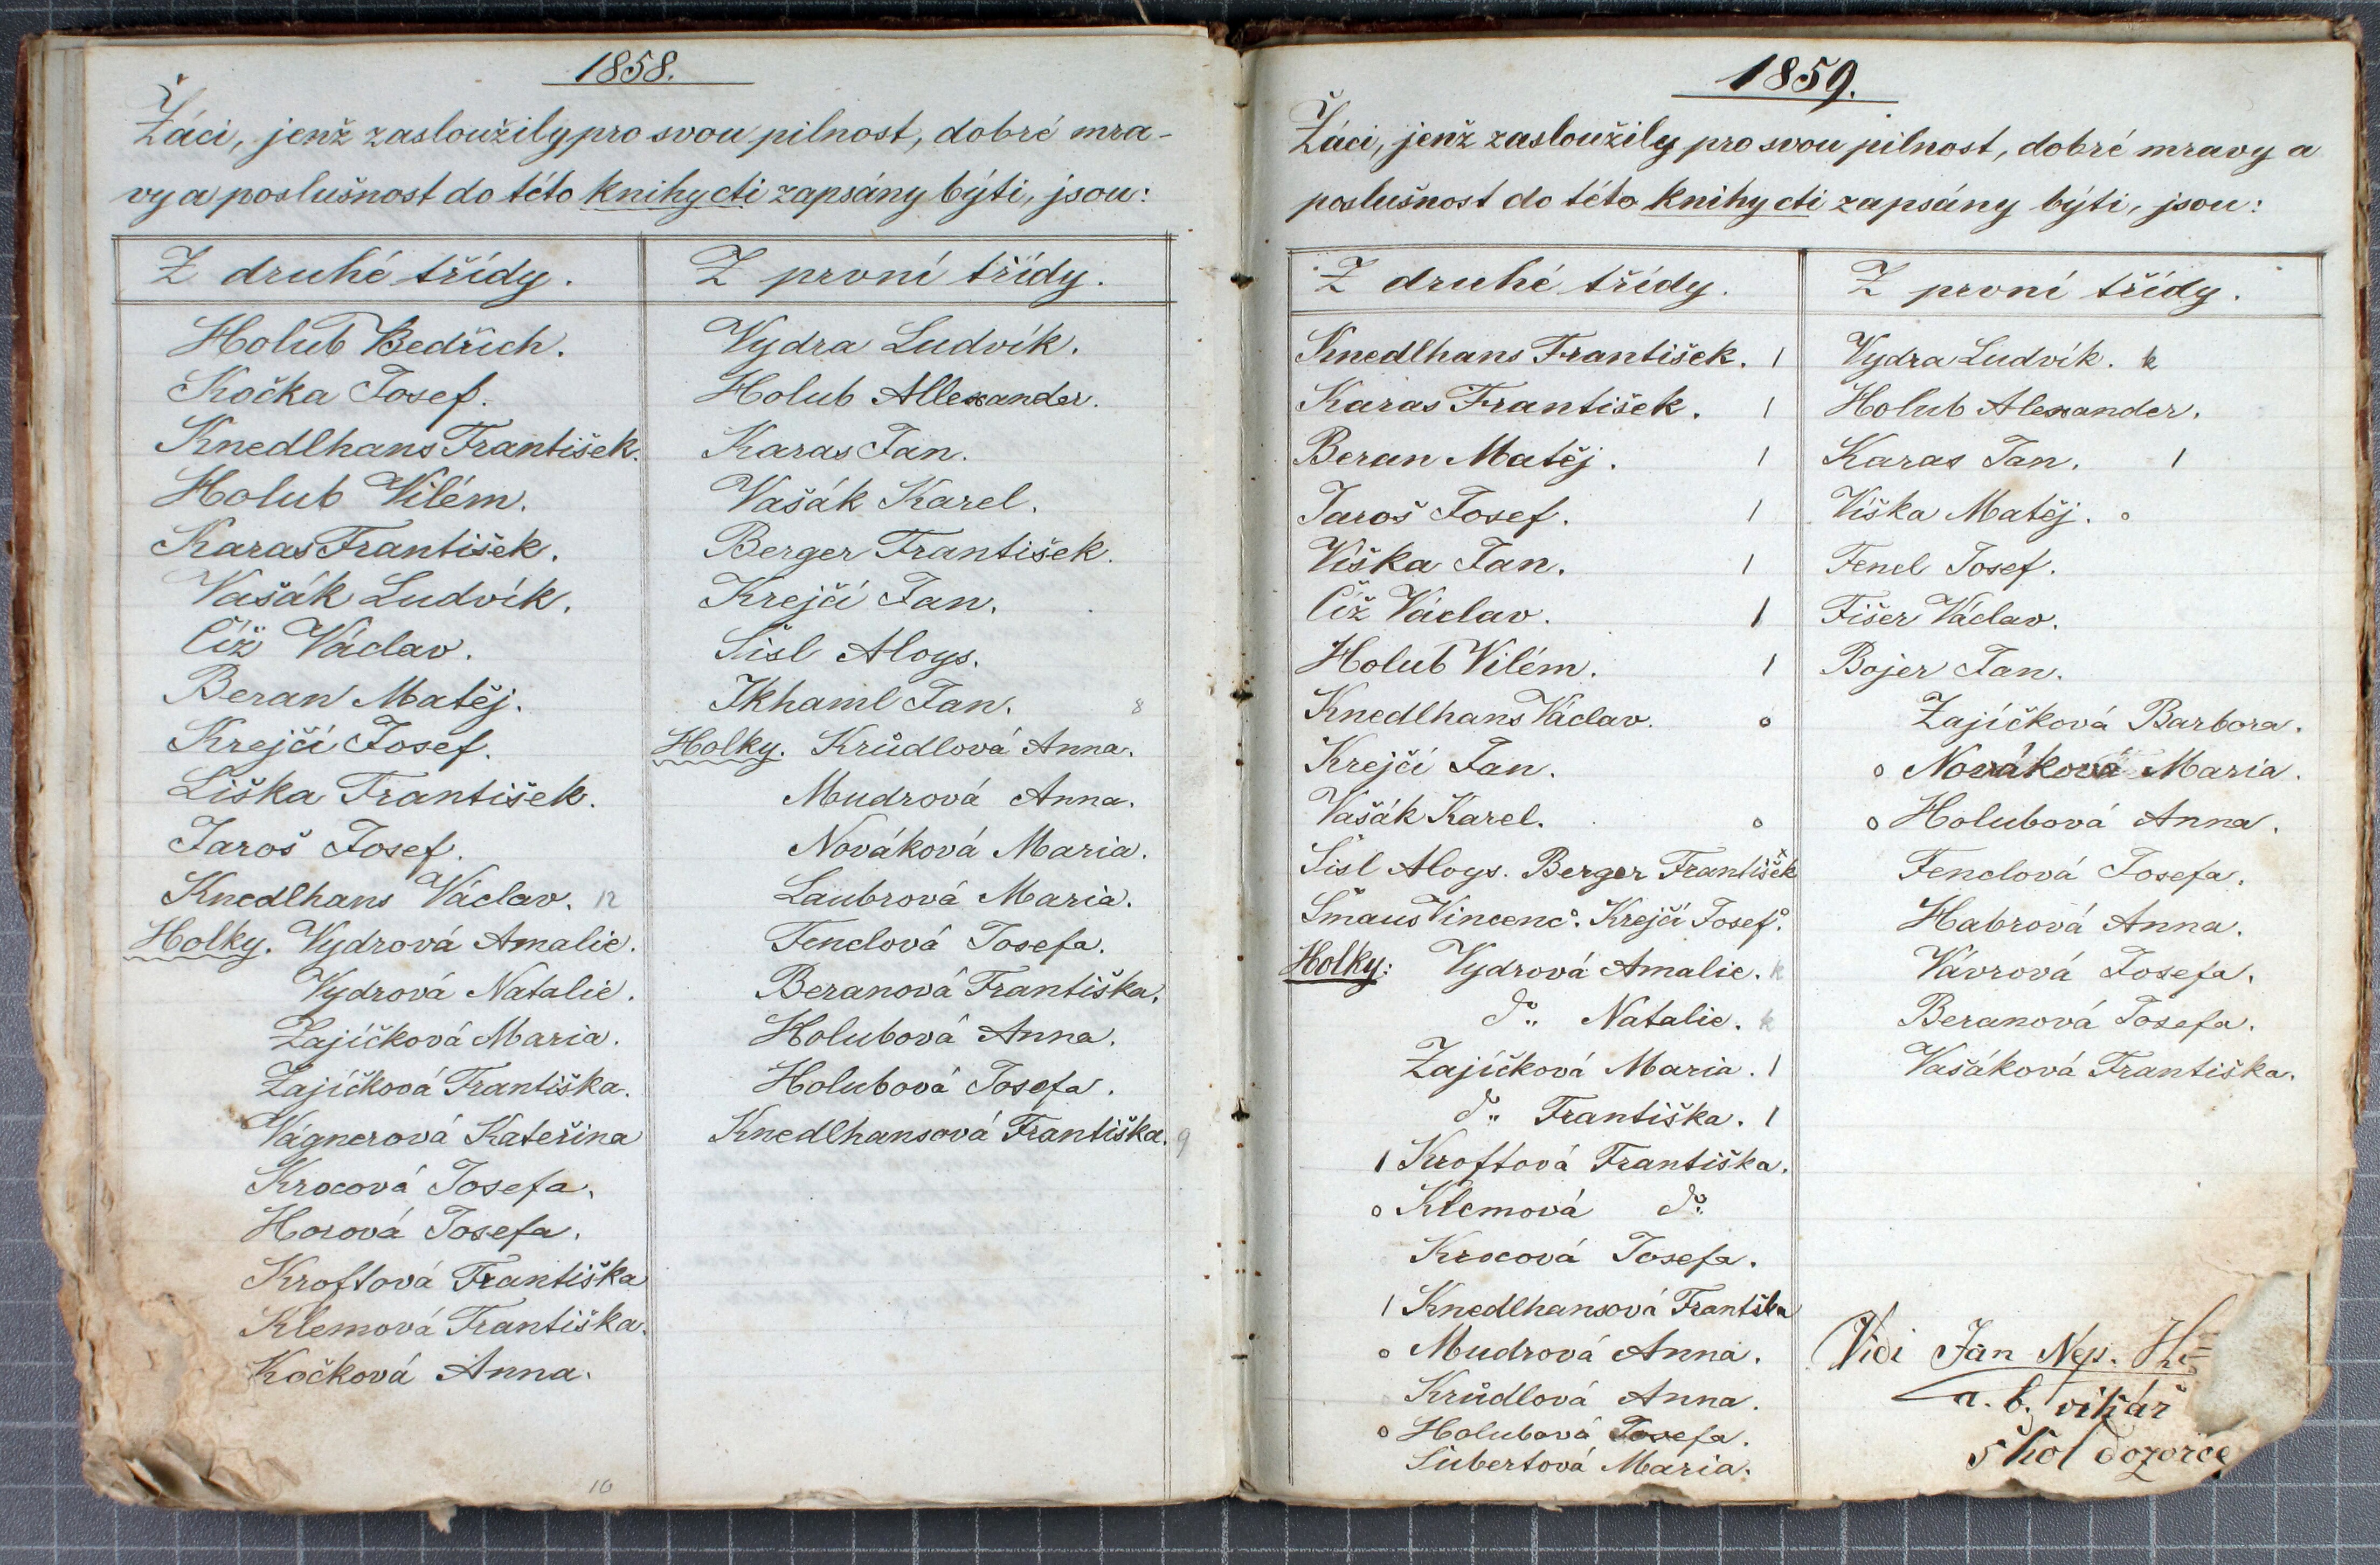 1858.
Žáci, jenž zasloužily pro svou pilnost, dobré mra-
vy a poslušnost do této knihy cti zapsány býti, jsou:
Z druhé třídy.
Holub Bedřich.
Kočka Josef.
Knedlhans František.
Holub Vilém.
Karas František.
Vašák Ludvík.
Číž Václav.
Beran Matěj.
Krejčí Josef.
Liška František.
Jaroš Josef.
Knedlhans Václav. 12
Holky. Vydrová Amalie.
Vydrová Natalie.
Zajíčková Maria.
Zajíčková Františka.
Vágnerová Kateřina
Krocová Josefa.
Horová Josefa.
Kroftová Františka
Klemová Františka.
Kočková Anna.
10
Z první třídy.
Vydra Ludvík.
Holub Allexander.
Karas Jan.
Vašák Karel.
Berger František.
Krejčí Jan.
Šišl Aloys.
Ikhaml Jan. 8
Holky. Krůdlová Anna.
Mudrová Anna.
Nováková Maria.
Laubrová Maria.
Fenclová Josefa.
Beranová Františka.
Holubová Anna.
Holubová Josefa.
Knedlhansová Františka. 9
1859.
Žáci, jenž zasloužily pro svou pilnost, dobré mravy a
poslušnost do této knihy cti zapsány býti, jsou:
Z druhé třídy.
Knedlhans František. 1
Karas František. 1
Beran Matěj. 1
Jaroš Josef. 1
Víška Jan. 1
Číž Václav. 1
Holub Vilém. 1
Knedlhans Václav. o
Krejčí Jan.
Vašák Karel. o
Šišl Aloys. Berger František
Šmaus Vincenc. Krejčí Josef.
Holky: Vydrová Amalie. k
do Natalie. k
Zajíčková Maria. 1
do Františka. 1
1 Kroftová Františka.
o Klemová do
Krocová Josefa.
1 Knedlhansová Františka
o Mudrová Anna.
Krůdlová Anna.
o Holubová Josefa.
Šubertová Maria.
Z první třídy.
Vydra Ludvík. k
Holub Alexander.
Karas Jan. 1
Víška Matěj. o
Fencl Josef.
Fišer Václav.
Bojer Jan.
Zajíčková Barbora.
o Nováková Maria.
o Holubová Anna.
Fenclová Josefa.
Habrová Anna.
Vávrová Josefa.
Beranová Josefa.
Vašáková Františka.
Vidi Jan Nep.
a. b. vikář
škol dozorce